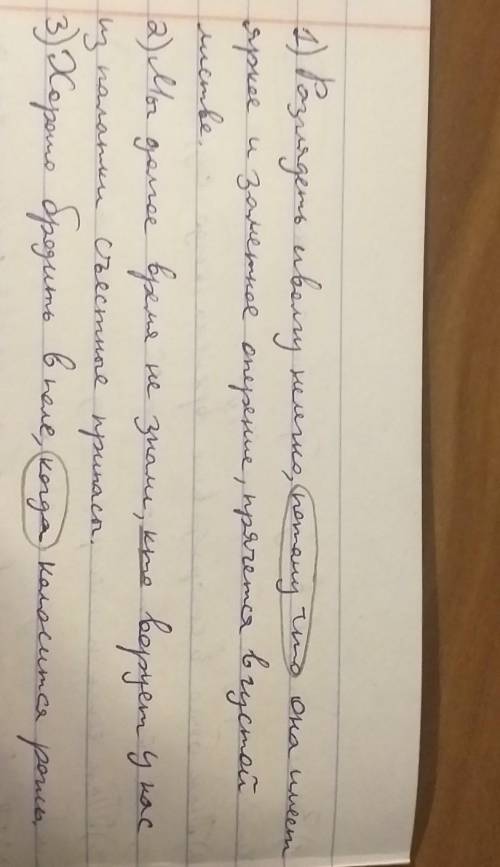 1) Разглядеть иволгу нелегко, потому что она имеет
яркое и заметное оперение, прячется в густой
листве.
2) Мы долгое время не знали, кто ворует у нас
из палатки съестные припасы.
3) Хорошо бродить в поле, когда колосится рожь.